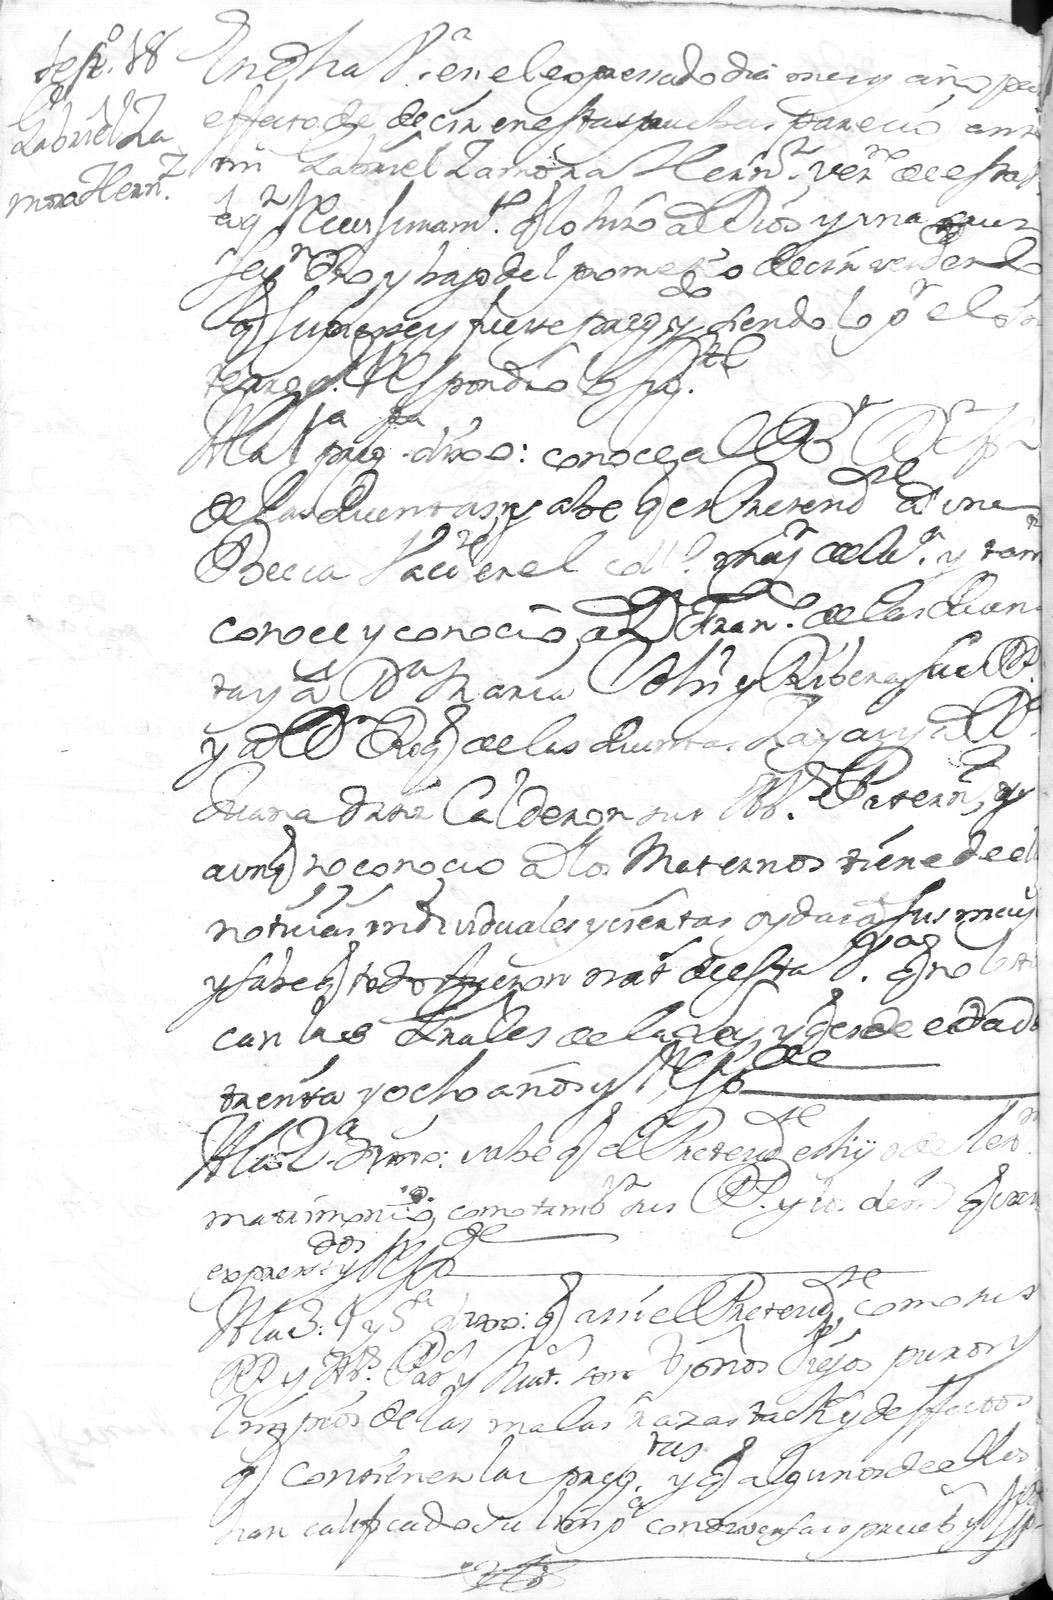 test.o 18
Gabriel Za
mora Hern.z
En dha V.a en el expressado dia mes y año pa
effecto de decir en estas pruebas pareció ante
mi Gabriel Zamora Hern.z vez.no de esta
de q.n Reciui juram.to q lo hizo a Dios y una cruz
seg.n dro y bajo del prometió decir verdad de
lo q supiere y fuere preg.do y siendolo p.r el
terrog. Respondió lo sig.te
A la 1.a preg.ta dixo: conoce al B.r D.n
de las Quentas y sabe q es Pretend.te a una
Becca Vac.te en el coll.o may.r de la y tam
conoce y conoció a D. Fran.co de las Quen
tas y a D.a Maria y Ribera sus P.
y a D.n Roq de las Quentas Zayas y a D.a
Juana Ortiz Calderon sus Ab.s Patern.s y
aunq no conoció a los Maternos tiene de ellos
noticias individuales y ciertas oydas a sus may
y sabe q todos fueron nat. de esta V. q no le to
can las Grales de la Ley y q es de edad de
treinta y ocho años y Resp.de
A la 2.a dixo: sabe q el Pretend.te es hijo de lex.mo
matrimonio, como tamb.n sus P.P. y los demas q van
expresados y Resp.de
A la 3. 4 y 5.a dixo: q assi el Pretend.te como sus
PP y Ab.s Pat.os y Mat.os son Xptnos Viejos puros y
limpios de las malas razas tachas y deffectos
q contienen las preg.tas y q algunos de ellos
han calificado su limp.a con diversas pruebas y Resp.de